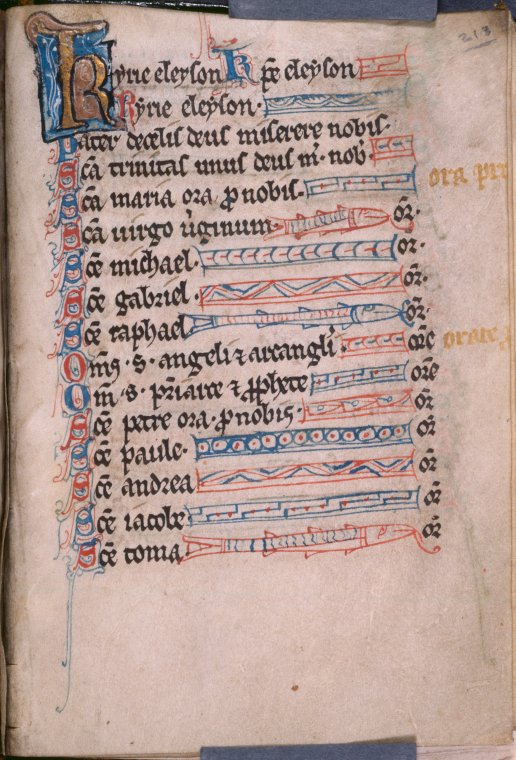 213
Kyrie eleyson Kpe eleyson
Kyrie eleyson.
Pater decelis deus miserere nobis.
Sca trinitas unus deus m. nob.
Sca maria ora p nobis.
ora pr
Sca uirgo uginum. or.
Sce michael. or.
Sce gabriel. or.
Sce raphael or.
Oms. s. angeli ⁊ arcangli. ore
orate
Om. s. priarce ⁊ pphete ore
Sce petre ora. p nobis. or
Sce paule. or
Sce andrea or
Sce iacobe or
Sce toma or